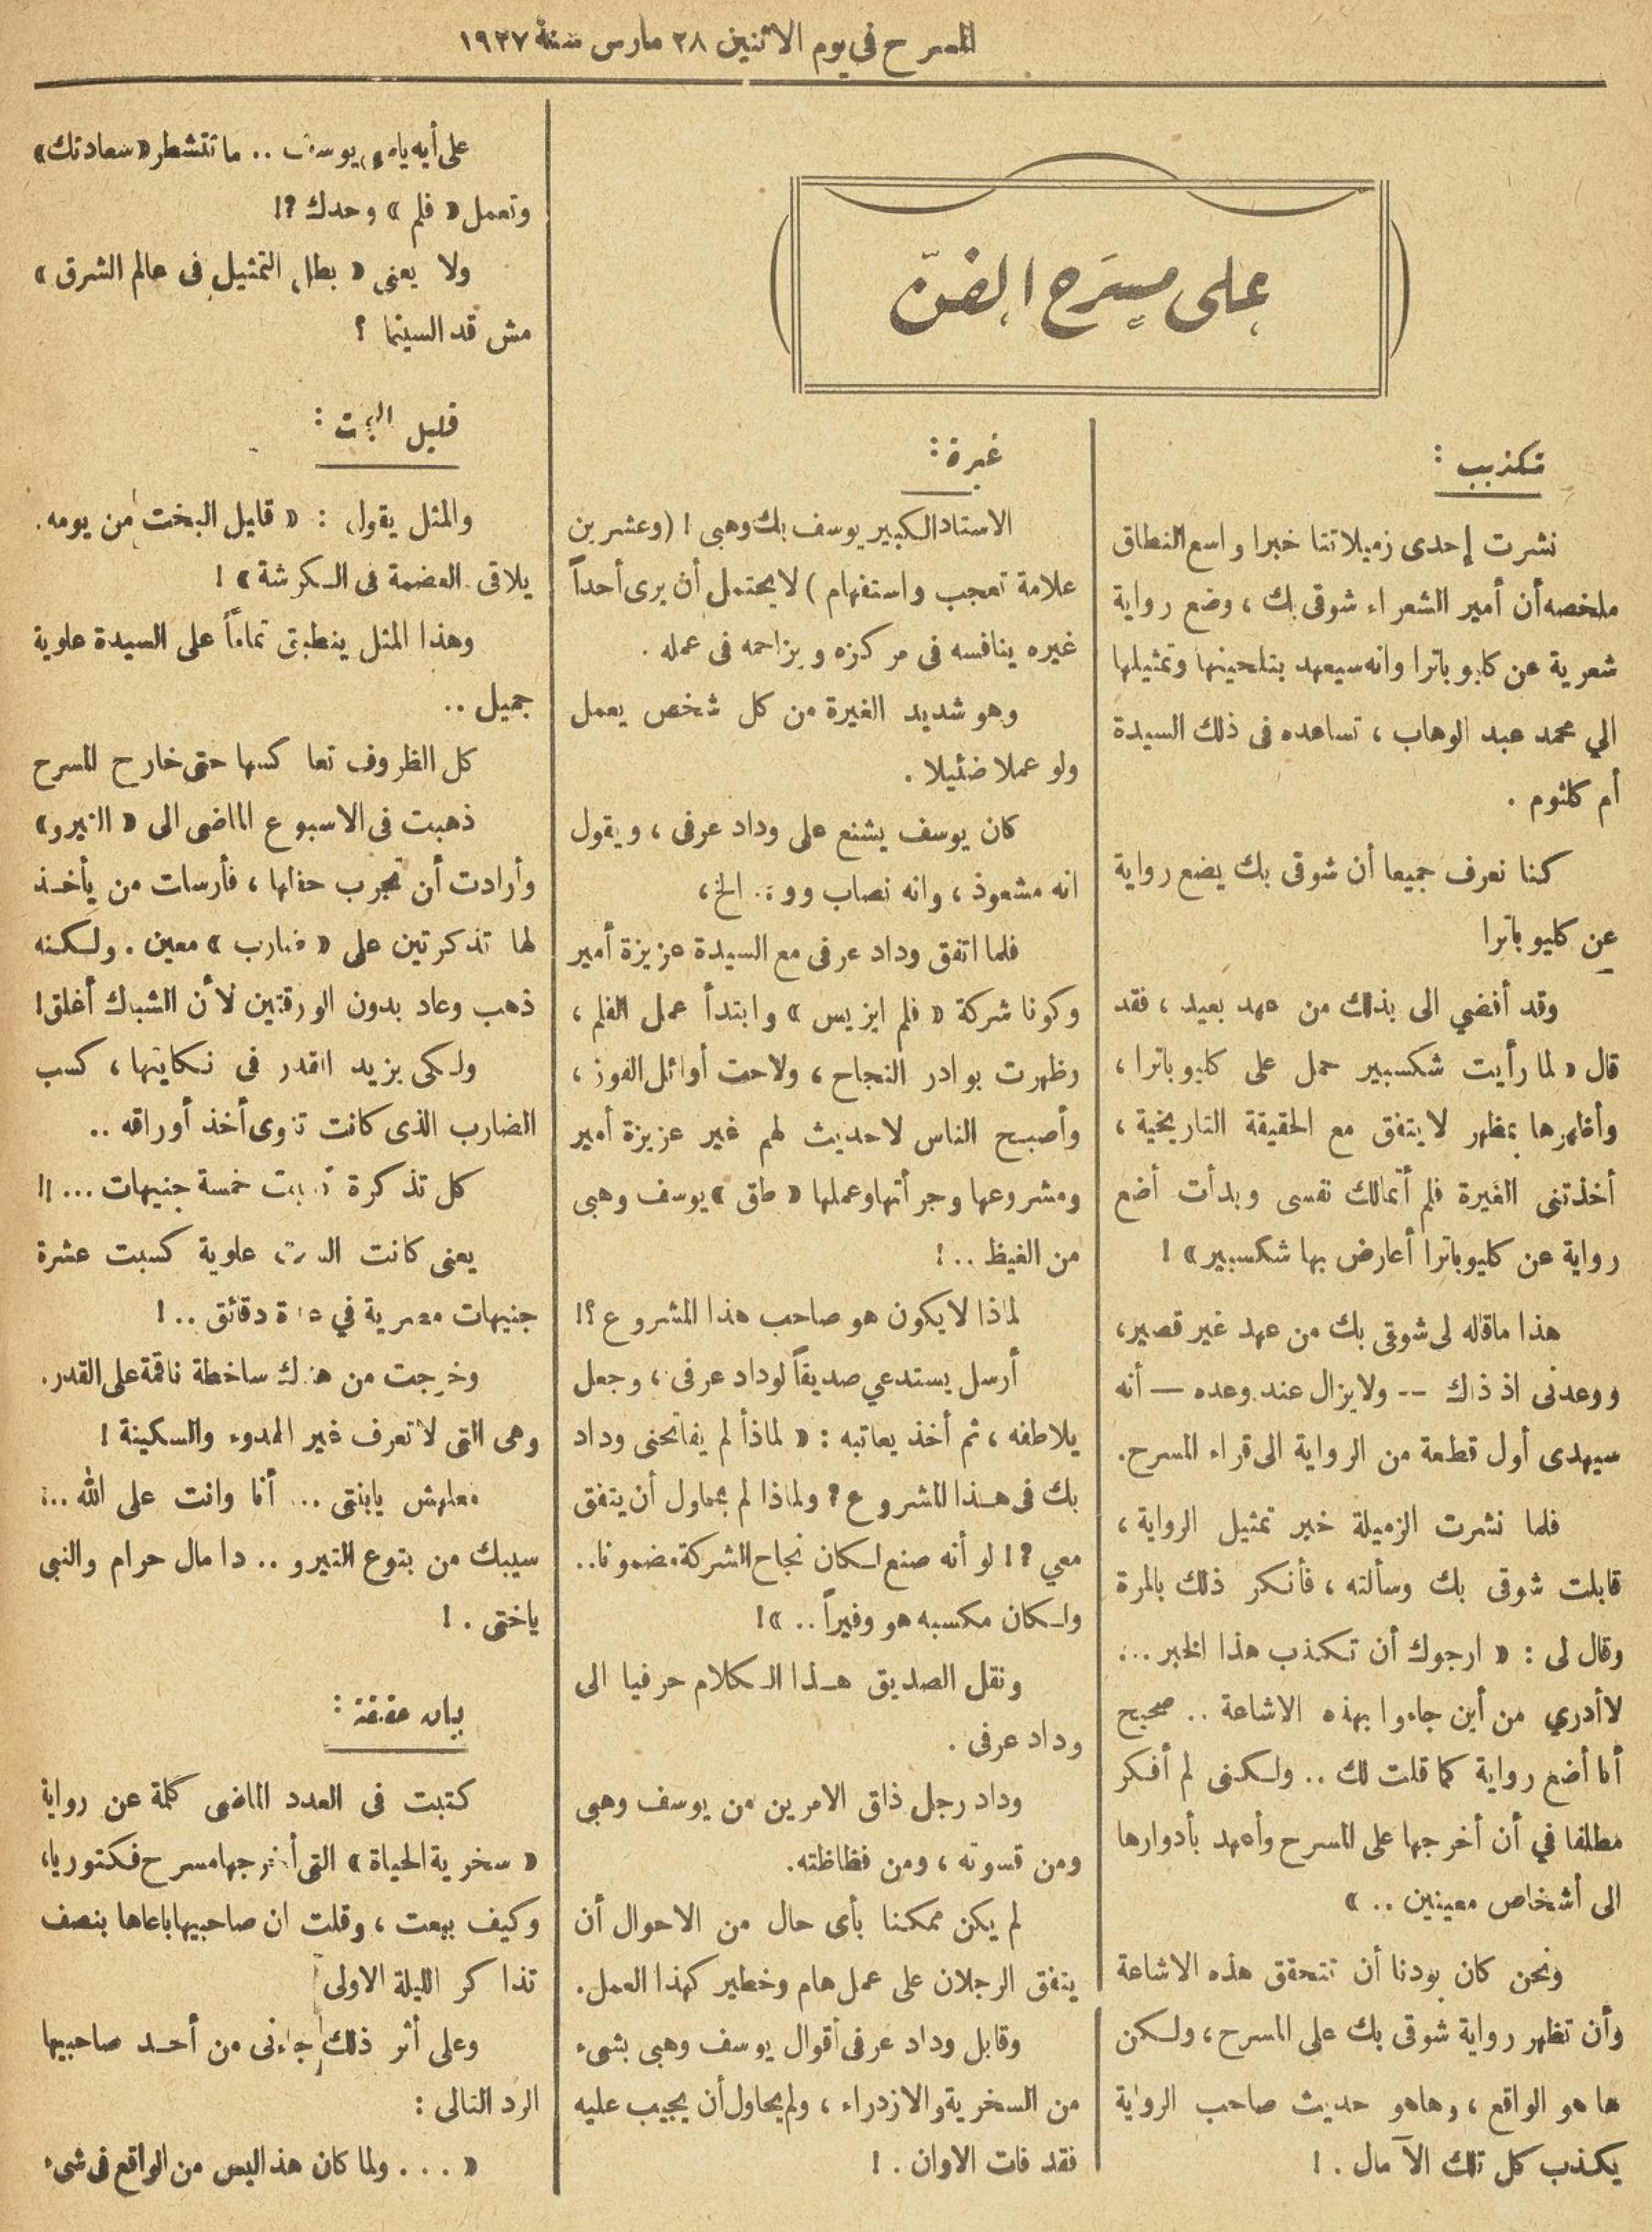 المسرح في يوم الاثنين ٢٨ مارس سنة ١٩٢٧
على مسرح الفن
تكذيب :
نشرت إحدى زميلاتنا خبرا واسع النطاق
ملخصه أن أمير الشعراء شوقى بك ، وضع رواية
شعرية عن كليوباترا وانه سيعهد بتلحينها وتمثيلها
الي محمد عبد الوهاب ، تساعده فى ذلك السيدة
أم كلثوم .
كنا نعرف جميعا أن شوقى بك يضع رواية
عن كليوباترا
وقد أفضي الى بذلك من عهد بعيد ، فقد
قال « لما رأيت شكسبير حمل على كليوباترا ،
وأظهرها بمظهر لا يتفق مع الحقيقة التاريخية ،
أخذتنى الغيرة فلم أتمالك نفسى وبدأت أضع
رواية عن كليوباترا أعارض بها شكسبير » !
هذا ماقاله لى شوقى بك من عهد غير قصير ،
ووعدنى اذ ذاك -- ولا يزال عند وعده — أنه
سيهدى أول قطعة من الرواية الى قراء المسرح .
فلما نشرت الزميلة خبر تمثيل الرواية ،
قابلت شوقى بك وسألته ، فأنكر ذلك بالمرة
وقال لى : « ارجوك أن تكذب هذا الخبر ...
لا أدري من أين جاءوا بهذه الاشاعة .. صحيح
أنا أضع رواية كما قلت لك .. ولكنى لم أفكر
مطلقا في أن أخرجها على المسرح وأعهد بأدوارها
الى أشخاص معينين .. »
ونحن كان بودنا أن تتحقق هذه الاشاعة
وأن تظهر رواية شوقى بك على المسرح ، ولكن
ها هو الواقع ، وهاهو حديث صاحب الرواية
يكذب كل تلك الآمال . !
غيرة :
الاستاذ الكبير يوسف بك وهبى ! (وعشرين
علامة تعجب واستفهام ) لا يحتمل أن يرى أحداً
غيره ينافسه فى مركزه ويزاحمه فى عمله .
وهو شديد الغيرة من كل شخص يعمل
ولو عملا ضئيلا .
كان يوسف يشنع على وداد عرفى ، ويقول
انه مشعوذ ، وانه نصاب وو .. الخ ،
فلما اتفق وداد عرفى مع السيدة عزيزة أمير
وكونا شركة « فلم ايزيس » وابتدأ عمل الفلم ،
وظهرت بوادر النجاح ، ولاحت أوائل الفوز ،
وأصبح الناس لاحديث لهم غير عزيزة أمير
ومشروعها وجرأتها وعملها « طق » يوسف وهبى
من الغيظ .. !
لماذا لا يكون هو صاحب هذا المشروع ؟!
أرسل يستدعي صديقاً لوداد عرفى ، وجعل
يلاطفه ، ثم أخذ يعاتبه : « لماذأ لم يفاتحنى وداد
بك فى هذا المشروع ؟ ولماذا لم يحاول أن يتفق
معي ؟! لو أنه صنع لكان نجاح الشركة مضمونا ..
ولكان مكسبه هو وفيراً .. » !
ونقل الصديق هذا الكلام حرفيا الى
وداد عرفى .
وداد رجل ذاق الامرين من يوسف وهبى
ومن قسوته ، ومن فظاظته .
لم يكن ممكنا بأى حال من الاحوال أن
يتفق الرجلان على عمل هام وخطير كهذا العمل .
وقابل وداد عرفى أقوال يوسف وهبى بشىء
من السخرية والازدراء ، ولم يحاول أن يجيب عليه
فقد فات الاوان . !
على أيه يا يوسف .. ما تتشطر « سعادتك »
وتعمل « فلم » وحدك ؟!
ولا يعنى « بطل التمثيل فى عالم الشرق »
مش قد السينما ؟
قليل البخت :
والمثل يقول : « قليل البخت من يومه .
يلاقى العضمة فى الكرشة » !
وهذا المثل ينطبق تماماً على السيدة علوية
جميل ..
كل الظروف تعاكسها حتى خارح المسرح
ذهبت فى الاسبوع الماضى الى « التيرو »
وأرادت أن تجرب حظها ، فأرسلت من يأخذ
لها تذكرتين على « ضارب » معين . ولكنه
ذهب وعاد بدون الورقتين لأن الشباك أغلق !
ولكى يزيد القدر فى نكايتها ، كسب
الضارب الذى كانت تنوى أخذ أوراقه ..
كل تذكرة كسبت خمسة جنيهات ... !!
يعنى كانت الست علوية كسبت عشرة
جنيهات مصرية في دقائق .. !
وخرجت من هناك ساخطة ناقمة على القدر .
وهى التى لا تعرف غير الهدوء والسكينة !
معلهش يابنتى ... أنا وانت على الله ..
سيبك من بتوع التيرو .. دا مال حرام والنبى
ياختى . !
بيان حقيقة :
كتبت فى العدد الماضى كلمة عن رواية
« سخرية الحياة » التى أخرجها مسرح فكتوريا ،
وكيف بيعت ، وقلت ان صاحبيها باعاها بنصف
تذاكر الليلة الاولى
وعلى أثر ذلك جاءنى من أحد صاحبيها
الرد التالى :
« ... ولما كان هذا ليس من الواقع فى شىء